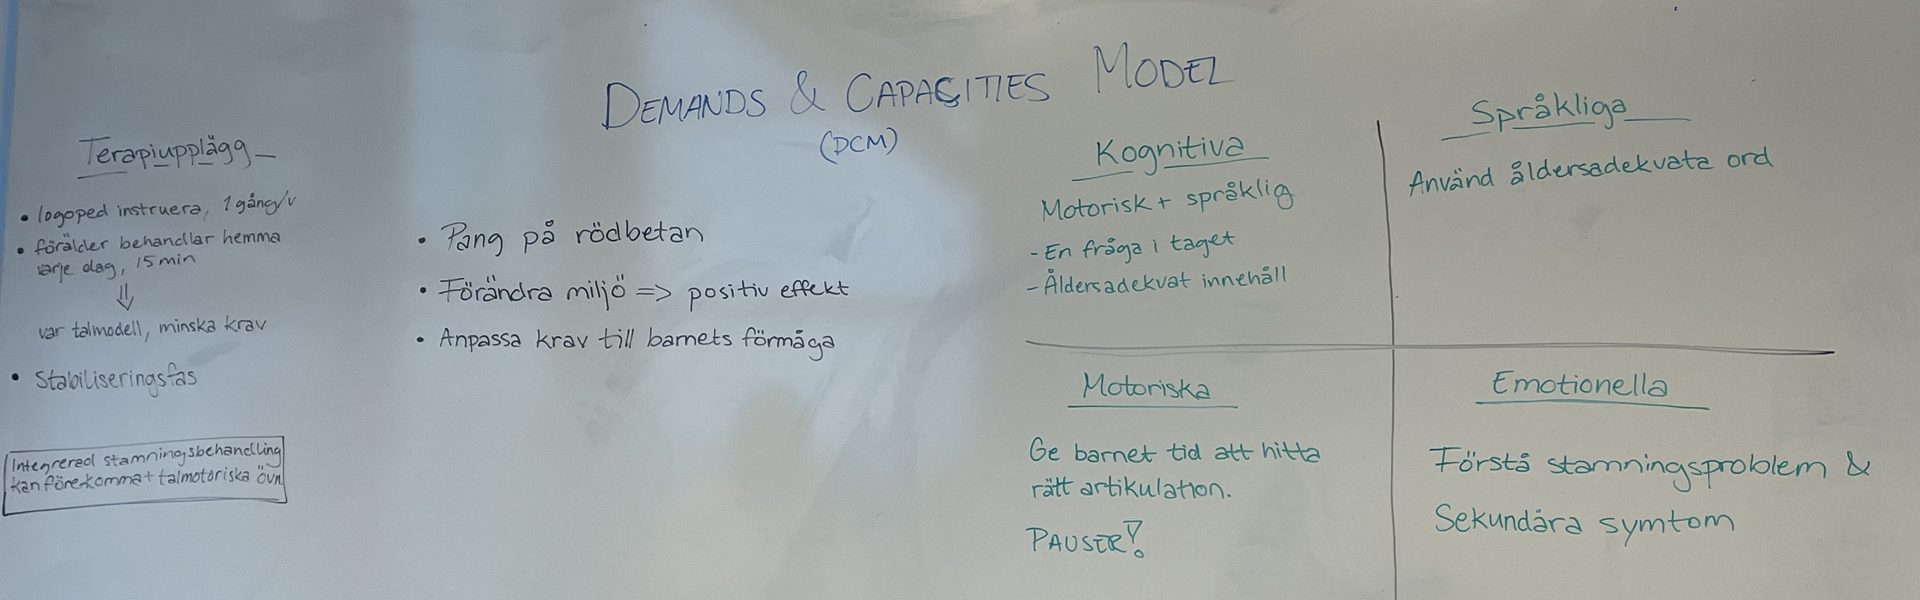 DEMANDS & CAPACITIES MODEL
(DCM)
Terapiupplägg
• logoped instruera, 1 gång/v
• förälder behandlar hemma
varje dag, 15 min
⇓
var talmodell, minska krav
• Stabiliseringsfas
Integrerad stamningsbehandling
kan förekomma + talmotoriska övn
• Pang på rödbetan
• Förändra miljö => positiv effekt
• Anpassa krav till barnets förmåga
Kognitiva
Motorisk + språklig
- En fråga i taget
- Åldersadekvat innehåll
Språkliga
Använd åldersadekvata ord
Motoriska
Ge barnet tid att hitta
rätt artikulation.
PAUSER!
Emotionella
Förstå stamningsproblem &
Sekundära symtom